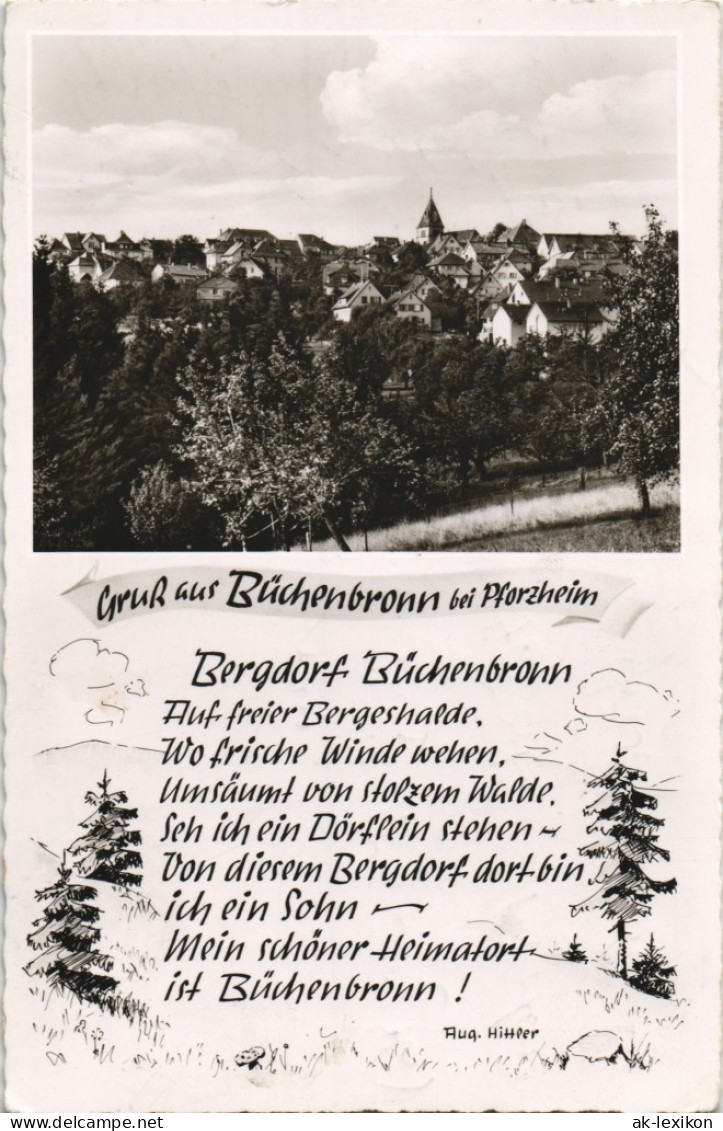 Gruß aus Büchenbronn bei Pforzheim
Bergdorf Büchenbronn
Auf freier Bergeshalde,
Wo frische Winde wehen,
Umsäumt von stolzem Walde,
Seh ich ein Dörflein stehen ~
Von diesem Bergdorf dort bin
ich ein Sohn ~
Mein schöner Heimatort
ist Büchenbronn !
Aug. Hittler
www.delcampe.net
ak-lexikon